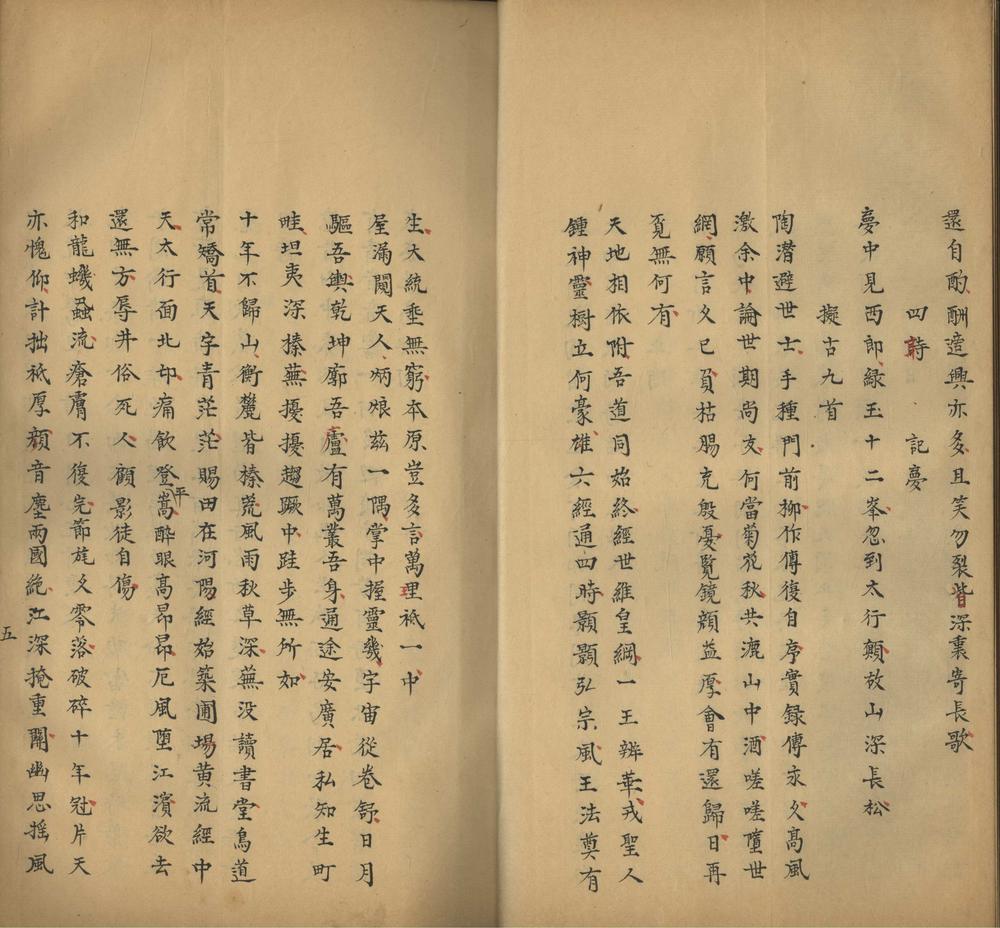 還自酌酬遣興亦多且笑勿裂眥深裏寄長歌
四詩 記夢
夢中見西郎綠玉十二峯忽到太行顛故山深長松
擬古九首
陶潛避世士手種門前柳作傳復自序實録傳永久高風
激余中論世期尚友何當菊花秋共漉山中酒嗟嗟墮世
網願言久已負枯腸充殷憂覧鏡顔益厚會有還歸日再
覓無何有
天地相依附吾道同始終經世維皇綱一王辨華戎聖人
鍾神靈樹立何豪雄六經通四時顥顥弘宗風王法奠有
生大統垂無窮本原豈多言萬理祗一中
屋漏闃天人炳烺茲一隅掌中握靈幾宇宙從巻舒日月
驅吾輿乾坤廓吾廬有萬叢吾身通途安廣居私知生町
畦坦夷深榛蕪擾擾趨蹶中跬步無所如
十年不歸山衡麓皆榛荒風雨秋草深蕪没讀書堂鳥道
常矯首天宇青茫茫賜田在河陽經始築圃場黄流經中
天太行面北邙痛飲登平嵩醉眼高昂昂厄風墮江濱欲去
還無方辱井俗死人顧影徒自傷
和龍蟣蝨流瘡膚不復完節旄久零落破碎十年冠片天
亦愧仰計拙祗厚顔音塵兩國絶江深掩重關幽思摇風
五